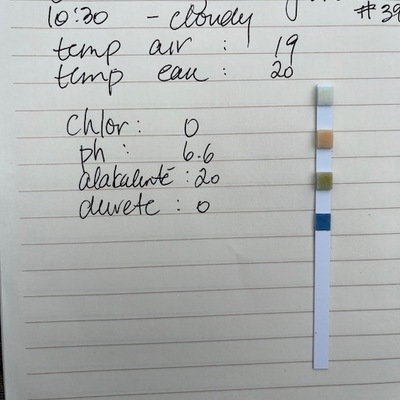 10:30 - cloudy #39
temp air : 19
temp eau : 20
chlor : 0
ph : 6.6
alakalenté : 20
durete : 0